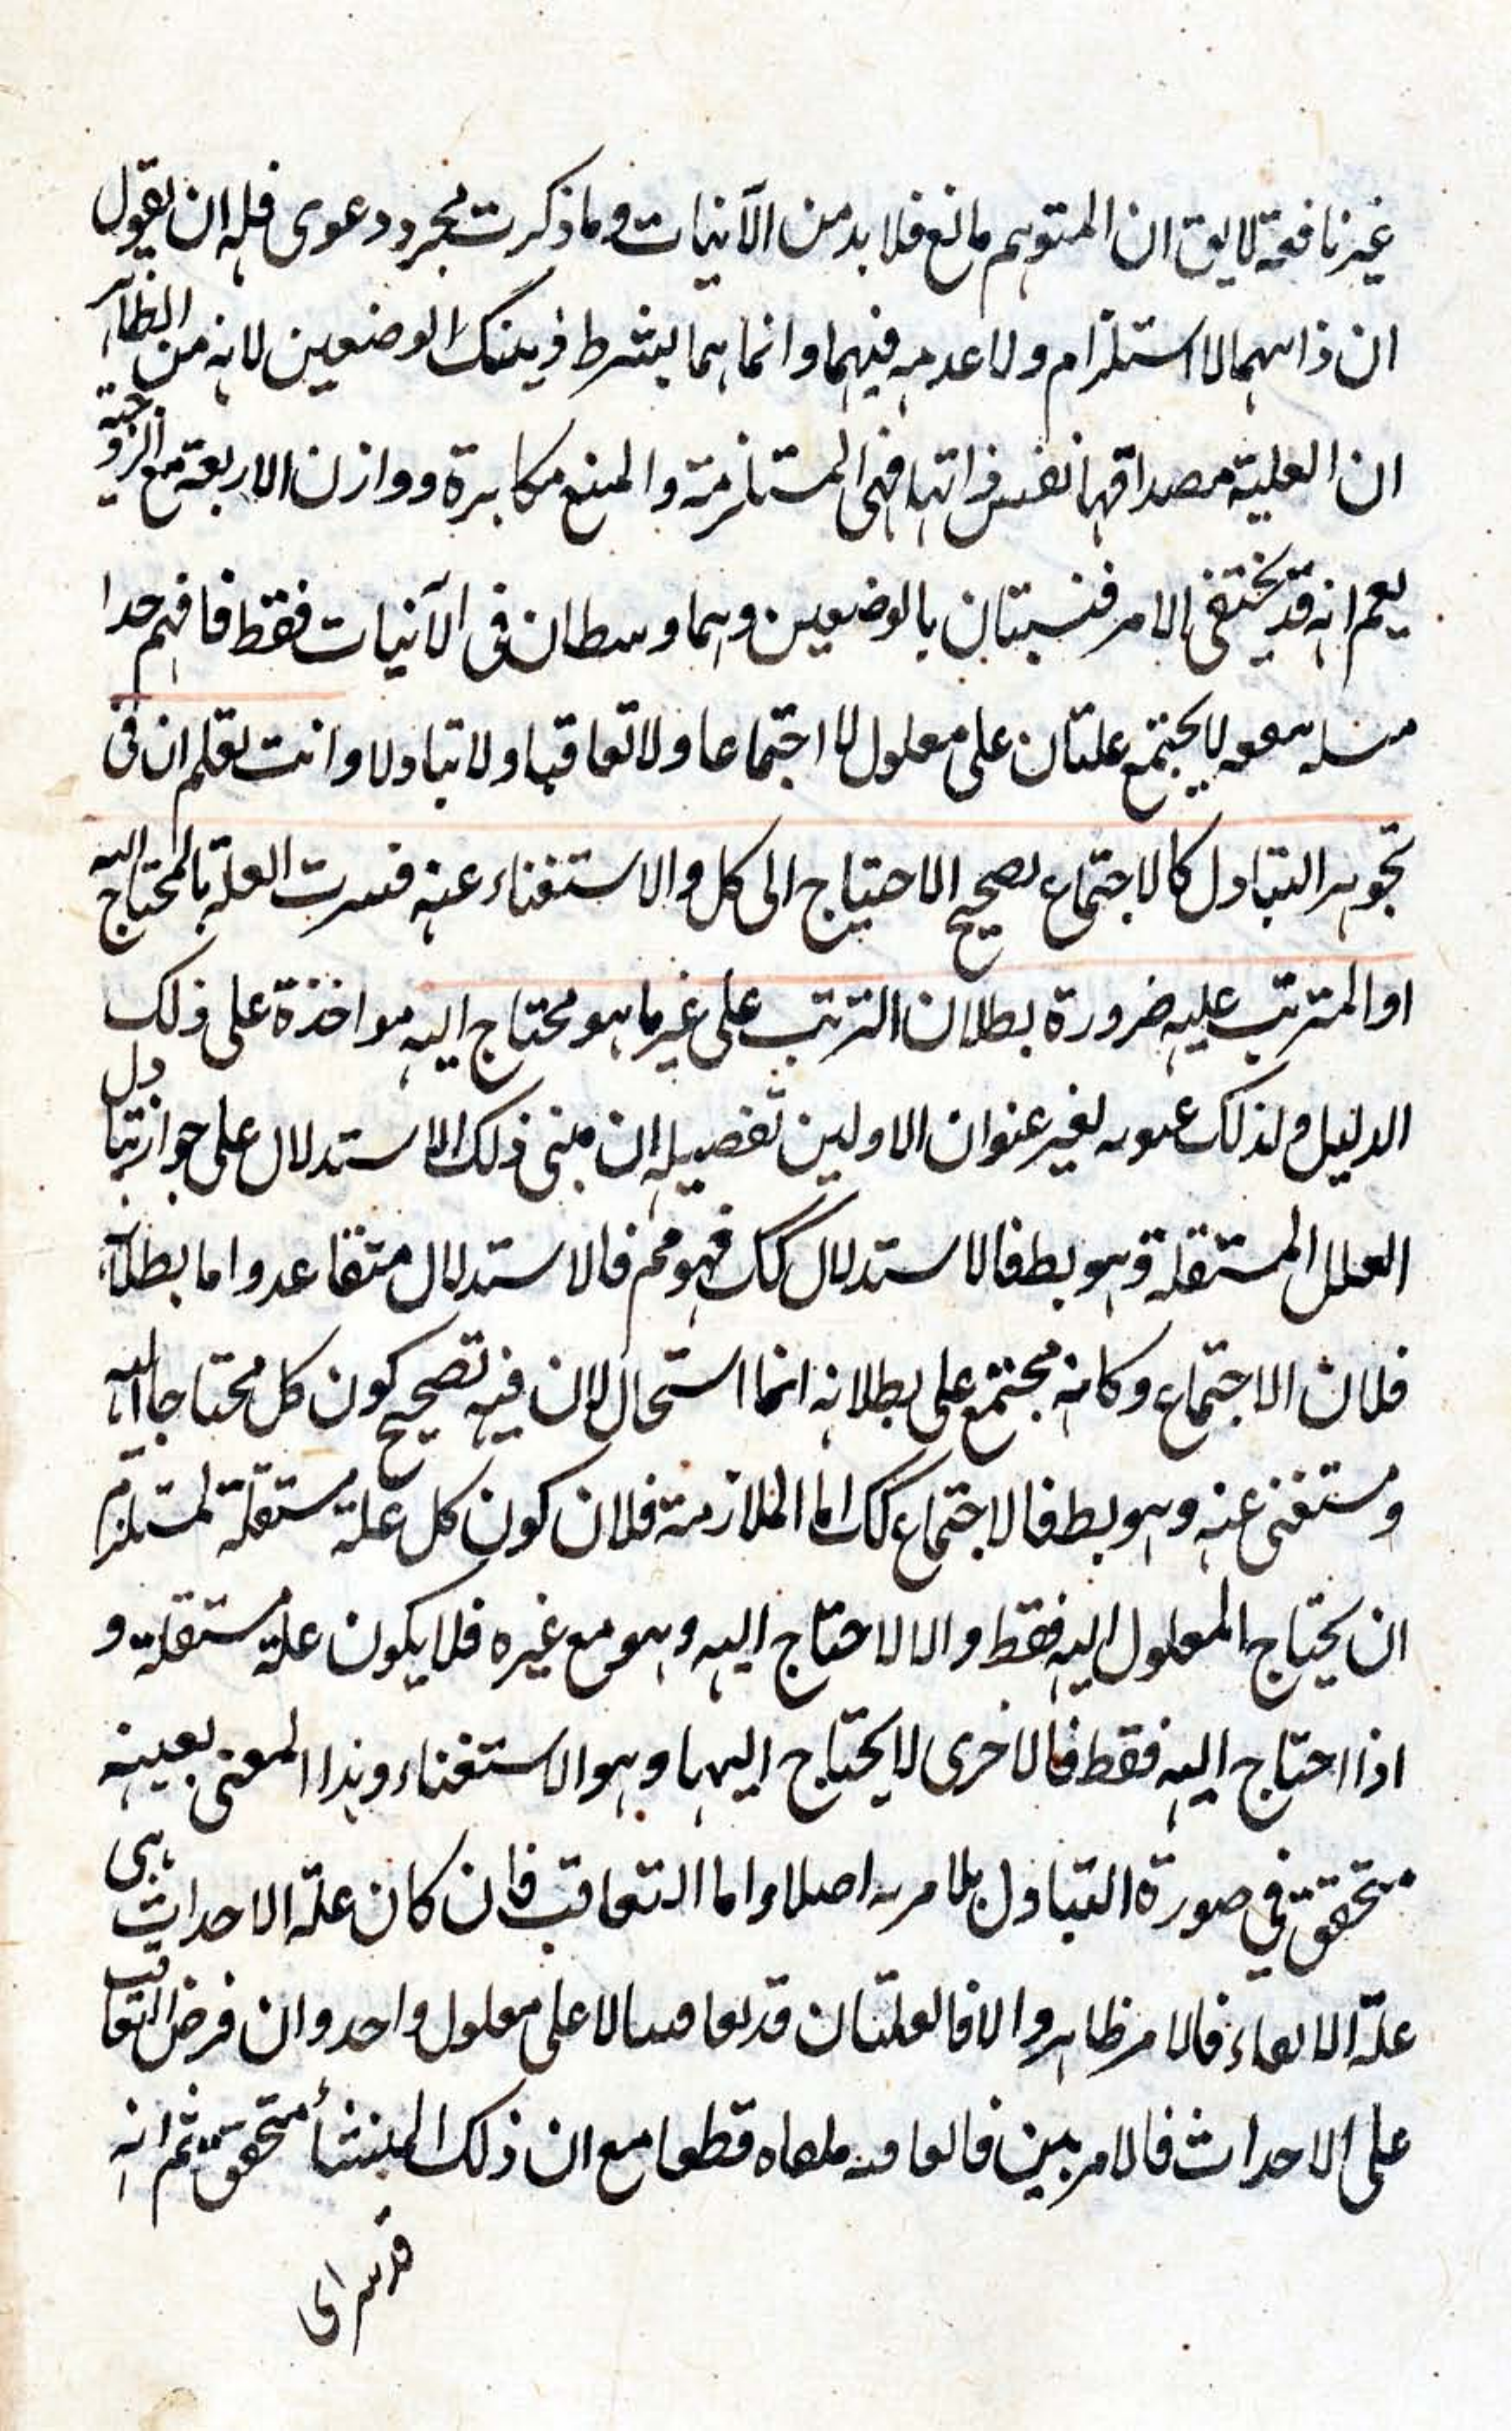 غير نافعة لا يق ان المتوهم مانع فلا بد من الآنيات وما ذكرت مجرد دعوى فله ان يقول
ان ذاتهما لا استلزام ولا عدمه فيهما وانما هما بشرط ذينك الوضعين لانه من الظاهر
ان العلية مصداقها نفس ذاتها فهى المستلزمة والمنع مكابرة ووازن الاربعة مع الزوجية
يعم انه قد يختفى الامر فنسبتان بالوضعين وهما وسطان فى الآنيات فقط فافهم جدا
لا يجتمع علتان على معلول لا اجتماعا ولا تعاقبا ولا تبادلا وانت تعلم ان فى
تجويز التبادل كالاجتماع تصحيح الاحتياج الى كل والاستغناء عنه فسرت العلة بالمحتاج اليه
او المترتب عليه ضرورة بطلان الترتب على غير ما هو محتاج اليه مواخذة على ذلك
الدليل ولذلك بغير عنوان الاولين تفصيله ان مبنى ذلك الاستدلال على جواز تبادل
العلل المستقلة وهو بط فالاستدلال كك فهو مم فالاستدلال متقاعد واما بطلانه
فلان الاجتماع وكانه مجتمع على بطلانه انما استحال لان فيه تصحيح كون كل محتاجا اليه
ومستغنى عنه وهو بط فالاجتماع كك اما الملازمة فلان كون كل علة مستقلة لمستلزم
ان يحتاج المعلول اليه فقط والا لاحتاج اليه وهو مع غيره فلا يكون علة مستقلة و
اذا احتاج اليه فقط فالاخرى لا يحتاج اليها وهو الاستغناء وهذا المعنى بعينه
متحقق فى صورة التبادل بلا مرية اصلا واما التعاقب فان كان علة الاحداث هى
علة الابقاء فالامر ظاهر والا فالعلتان قد تعاقبتا لا على معلول واحد وان فرض التعاقب
على الاحداث فالامر بين قطعا مع ان ذلك المنشأ متحقق ثم انه